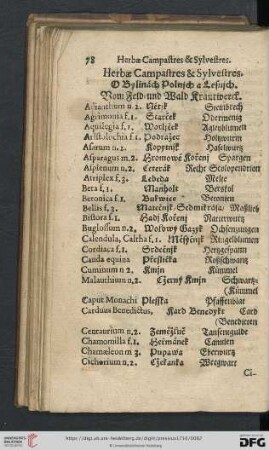 78 Herbæ Campastres & Sylvestres.
Herbæ Campastres & Sylvestres.
O Bylinách Polnich a Lesnich.
Vom Feld-und Wald Krautwerck.
Adianthum n.2. Nětik Steinbrech
Agrimonia f.1. Starček Odermenig
Aquilegia f.1. Worlíček Agleyblumen
Aristolochia f.1. Podražec Holtzwurm
Asarum n.2. Kopytnik Haselwurtz
Asparagus m.2. Hromowé Kořenj Spargen
Asplenum n.2. Ceterák Recht Stolopendrien
Atriplex f.3. Lebeda Melte
Beta f.1. Manholt Beissol
Betonica f.1. Bukwice Betonien
Bellis f.3. Matečnjk Sedmikrása
Bistorta f.1. Hadj Kořenj Naterwurtz
Buglossum n.2. Wolowy Gazyk Ochsenzungen
Calendula, Caltha f.1. Měsyček Ringelblumen
Cordiaca f.1. Srdečnjk Hertzgespann
Cauda equina Přeslička Roßschwantz
Cuminum n.2. Kmjn Kümmel
Malanthium n.2. Czerný Kmjn Schwartz
(Kümmel
Caput Monachi Pleška Pfaffenblat
Carduus Benedictus, Kard Benedykt Card
(Benedicten
Centaurium n.2. Zeměžluč Tausengulde
Chamomilla f.1. Heřmánek Camilen
Chamæleon m.3. Pupawa Eberwurtz
Cichorium n.2. Czekanka Wegwart
Ci-
https://digi.ub.uni-heidelberg.de/diglit/comenius1716/0082